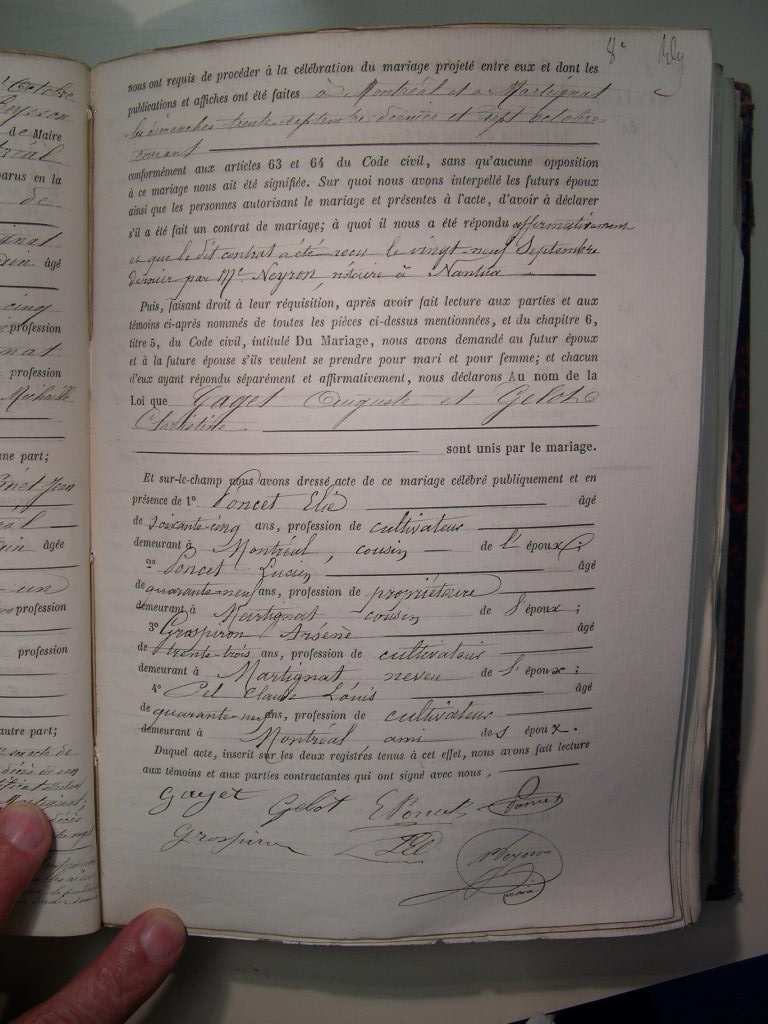 8e
nous ont requis de procéder à la célébration du mariage projeté entre eux et dont les
publications et affiches ont été faites à Montréal et à Martignat
les dimanches trente septembre dernier et sept octobre
courant
conformément aux articles 63 et 64 du Code civil, sans qu'aucune opposition
à ce mariage nous ait été signifiée. Sur quoi nous avons interpellé les futurs époux
ainsi que les personnes autorisant le mariage et présentes à l'acte, d'avoir à déclarer
s'il a été fait un contrat de mariage; à quoi il nous a été répondu affirmativement
et que le dit contrat a été reçu le vingt neuf Septembre
dernier par Me Neyron, notaire à Nantua
Puis, faisant droit à leur réquisition, après avoir fait lecture aux parties et aux
témoins ci-après nommés de toutes les pièces ci-dessus mentionnées, et du chapitre 6,
titre 5, du Code civil, intitulé Du Mariage, nous avons demandé au futur époux
et à la future épouse s'ils veulent se prendre pour mari et pour femme; et chacun
d'eux ayant répondu séparément et affirmativement, nous déclarons Au nom de la
Loi que Gaget Auguste et Gelot
Christine
sont unis par le mariage.
Et sur-le-champ nous avons dressé acte de ce mariage célébré publiquement et en
présence de 1° Poncet Elie âgé
de soixante-cinq ans, profession de cultivateur
demeurant à Montréal, cousin de l'époux;
2° Poncet Lucien âgé
de quarante-neuf ans, profession de propriétaire
demeurant à Martignat cousin de l'époux;
3° Grospiron Arsène âgé
de trente-trois ans, profession de cultivateur
demeurant à Martignat neveu de l'époux;
4° Pel Claude Louis âgé
de quarante-neuf ans, profession de cultivateur
demeurant à Montréal ami des époux.
Duquel acte, inscrit sur les deux registres tenus à cet effet, nous avons fait lecture
aux témoins et aux parties contractantes qui ont signé avec nous,
Gayet Gelot E Poncet Poncet
Grospiron Pel